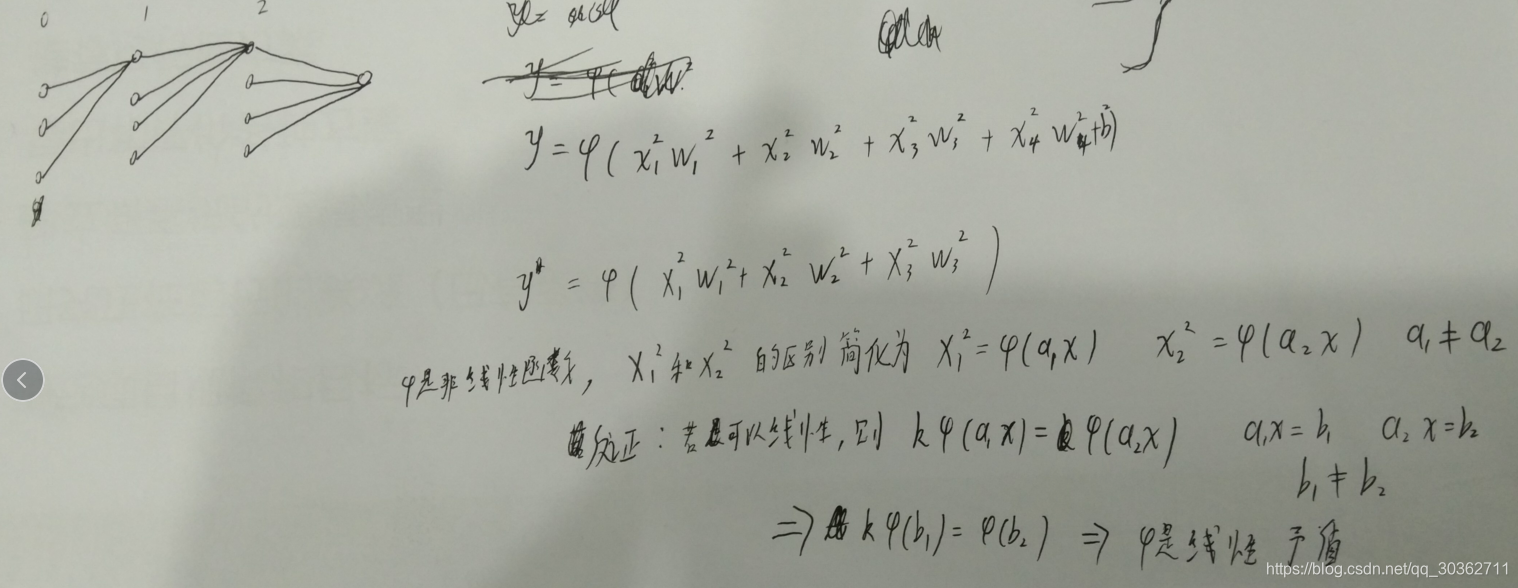 0 1 2
y =
y = φ(
y = φ( x₁² w₁² + x₂² w₂² + x₃² w₃² + x₄² w₄² + b²)
y* = φ( x₁² w₁² + x₂² w₂² + x₃² w₃² )
φ是非线性函数, x₁² 和 x₂² 的区别 简化为 x₁² = φ(a₁x) x₂² = φ(a₂x) a₁ ≠ a₂
反证: 若可以线性, 则 kφ(a₁x) = φ(a₂x) a₁x = b₁ a₂x = b₂
b₁ ≠ b₂
⇒ kφ(b₁) = φ(b₂) ⇒ φ是线性 矛盾
https://blog.csdn.net/qq_30362711